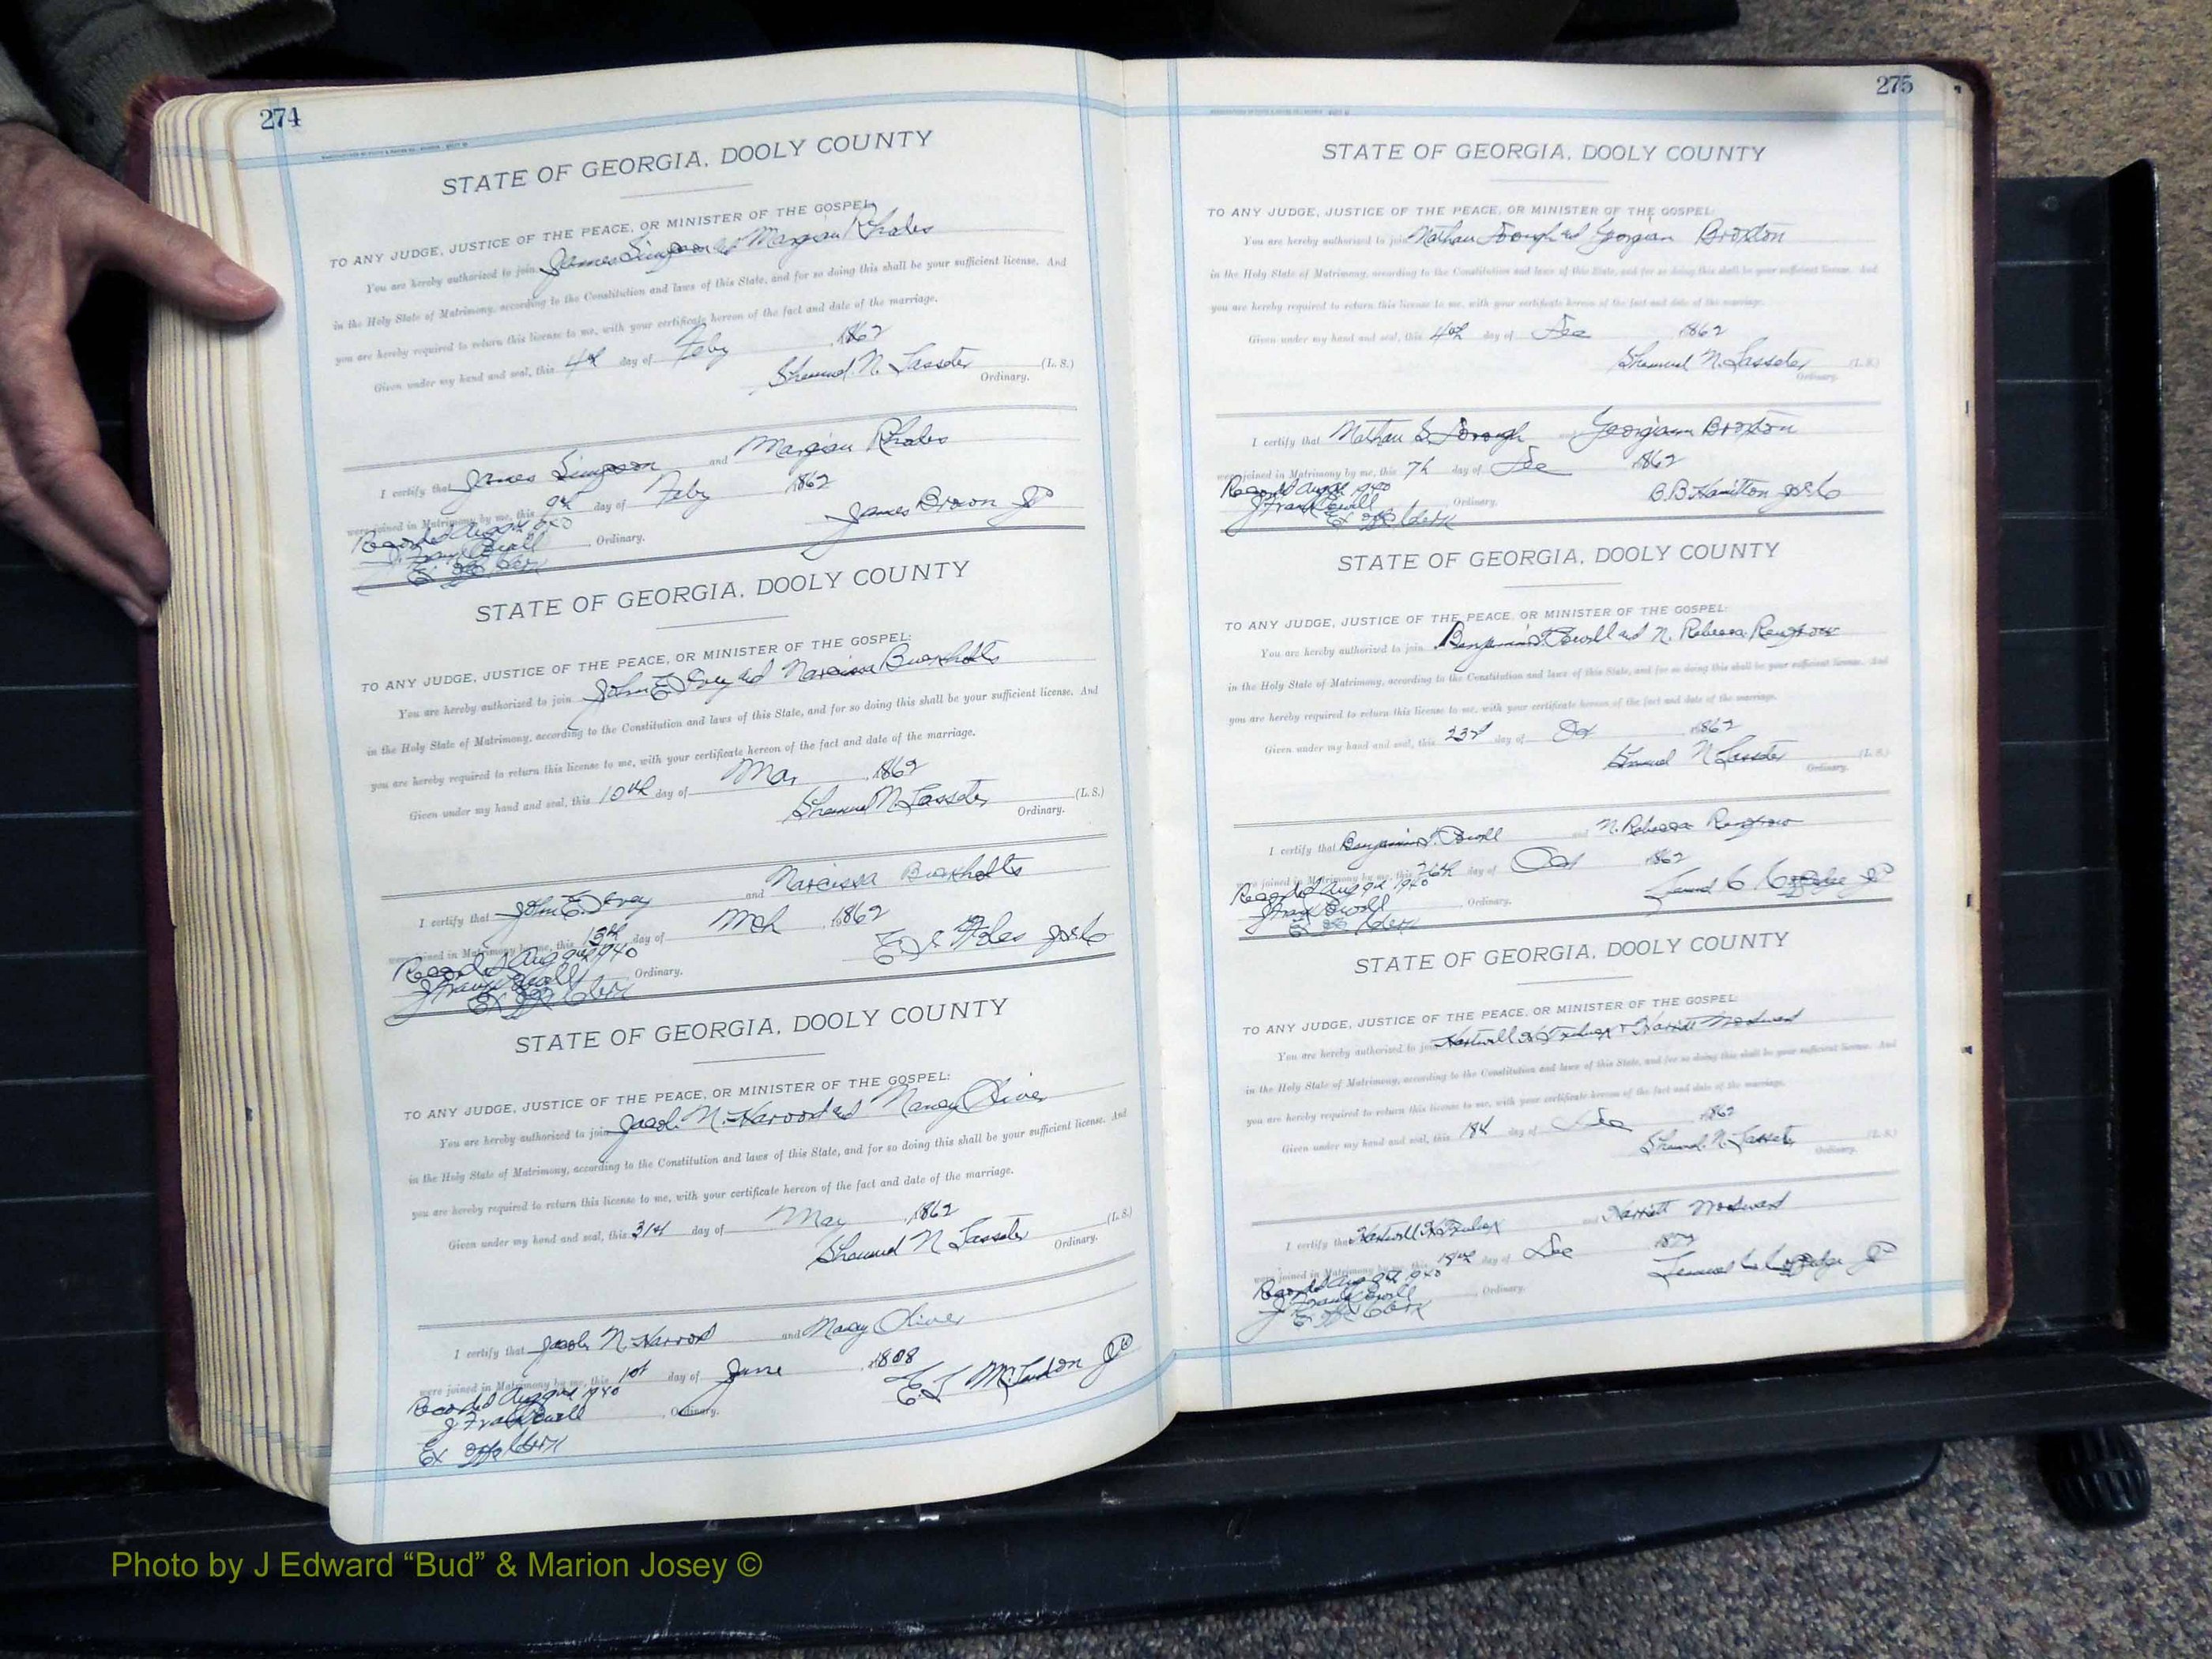 274
STATE OF GEORGIA, DOOLY COUNTY
TO ANY JUDGE, JUSTICE OF THE PEACE, OR MINISTER OF THE GOSPEL:
You are hereby authorized to join James Simpson and Margian Rhodes
in the Holy State of Matrimony, according to the Constitution and laws of this State, and for so doing this shall be your sufficient license. And
you are hereby required to return this license to me, with your certificate hereon of the fact and date of the marriage.
Given under my hand and seal, this 4th day of Feby 1862
N. Lasseter (L. S.)
Ordinary.
I certify that James Simpson and Margian Rhodes
were joined in Matrimony by me, this 9th day of Feby 1862
Recorded Aug 9th 1940 James Brown JP
J Frank Ordinary.
Ex off Clerk
STATE OF GEORGIA, DOOLY COUNTY
TO ANY JUDGE, JUSTICE OF THE PEACE, OR MINISTER OF THE GOSPEL:
You are hereby authorized to join John E and Narcissa Buckholts
in the Holy State of Matrimony, according to the Constitution and laws of this State, and for so doing this shall be your sufficient license. And
you are hereby required to return this license to me, with your certificate hereon of the fact and date of the marriage.
Given under my hand and seal, this 10th day of Mar 1862
N Lasseter (L. S.)
Ordinary.
I certify that John E. and Narcissa Buckholts
were joined in Matrimony by me, this 13th day of Mch 1862
Recorded Aug 9th 1940 E J
J Frank Ordinary.
Ex off Clerk
STATE OF GEORGIA, DOOLY COUNTY
TO ANY JUDGE, JUSTICE OF THE PEACE, OR MINISTER OF THE GOSPEL:
You are hereby authorized to join Jacob N. Harrod and Nancy Oliver
in the Holy State of Matrimony, according to the Constitution and laws of this State, and for so doing this shall be your sufficient license. And
you are hereby required to return this license to me, with your certificate hereon of the fact and date of the marriage.
Given under my hand and seal, this 31st day of May 1862
N Lasseter (L. S.)
Ordinary.
I certify that Jacob N. Harrod and Nancy Oliver
were joined in Matrimony by me, this 1st day of June 1808
Recorded Aug 9th 1940 JP
J Frank Ordinary.
Ex off Clerk
275
STATE OF GEORGIA, DOOLY COUNTY
TO ANY JUDGE, JUSTICE OF THE PEACE, OR MINISTER OF THE GOSPEL:
You are hereby authorized to join Nathan and Georgian Broxton
in the Holy State of Matrimony, according to the Constitution and laws of this State, and for so doing this shall be your sufficient license. And
you are hereby required to return this license to me, with your certificate hereon of the fact and date of the marriage.
Given under my hand and seal, this 4th day of Dec 1862
N. Lasseter (L. S.)
Ordinary.
I certify that Nathan S. and Georgiann Broxton
were joined in Matrimony by me, this 7th day of Dec 1862
Recorded Aug 9th 1940 B. B. Hamilton
J Frank Ordinary.
Ex off Clerk
STATE OF GEORGIA, DOOLY COUNTY
TO ANY JUDGE, JUSTICE OF THE PEACE, OR MINISTER OF THE GOSPEL:
You are hereby authorized to join Benjamin and N. Rebecca Renfrow
in the Holy State of Matrimony, according to the Constitution and laws of this State, and for so doing this shall be your sufficient license. And
you are hereby required to return this license to me, with your certificate hereon of the fact and date of the marriage.
Given under my hand and seal, this 23d day of Oct 1862
N Lasseter (L. S.)
Ordinary.
I certify that Benjamin and N. Rebecca Renfrow
were joined in Matrimony by me, this 26th day of Oct 1862
Recorded Aug 9th 1940 JP
J Frank Ordinary.
Ex off Clerk
STATE OF GEORGIA, DOOLY COUNTY
TO ANY JUDGE, JUSTICE OF THE PEACE, OR MINISTER OF THE GOSPEL:
You are hereby authorized to join Hartwell H & Harriett Woodward
in the Holy State of Matrimony, according to the Constitution and laws of this State, and for so doing this shall be your sufficient license. And
you are hereby required to return this license to me, with your certificate hereon of the fact and date of the marriage.
Given under my hand and seal, this 18th day of Dec 1862
N. Lasseter (L. S.)
Ordinary.
I certify that Hartwell H and Harriett Woodward
were joined in Matrimony by me, this 18th day of Dec
Recorded Aug 9th 1940 JP
J Frank Ordinary.
Ex off Clerk
Photo by J Edward “Bud” & Marion Josey ©